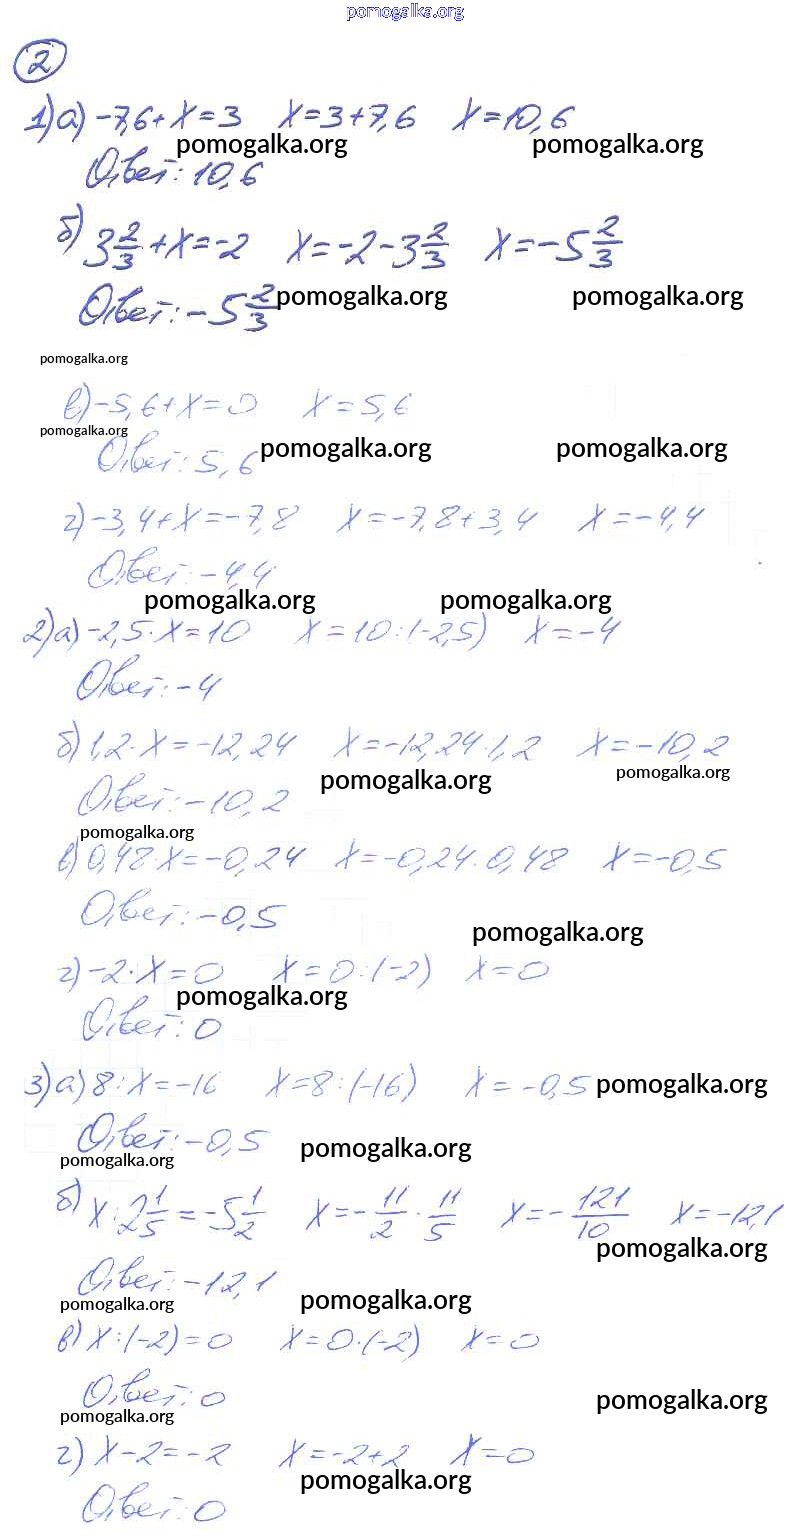 pomogalka.org
2
1) а) -7,6+x=3 x=3+7,6 x=10,6
pomogalka.org pomogalka.org
Ответ: 10,6
б) 3 2/3 + x = -2 x = -2 - 3 2/3 x = -5 2/3
Ответ: -5 2/3 pomogalka.org pomogalka.org
pomogalka.org
в) -5,6+x=0 x=5,6
pomogalka.org
Ответ: 5,6 pomogalka.org pomogalka.org
г) -3,4+x=-7,8 x=-7,8+3,4 x=-4,4
Ответ: -4,4
pomogalka.org pomogalka.org
2) а) -2,5·x=10 x=10:(-2,5) x=-4
Ответ: -4
б) 1,2·x=-12,24 x=-12,24·1,2 x=-10,2
pomogalka.org pomogalka.org
Ответ: -10,2
pomogalka.org
в) 0,48·x=-0,24 x=-0,24·0,48 x=-0,5
Ответ: -0,5
pomogalka.org
г) -2·x=0 x=0:(-2) x=0
pomogalka.org
Ответ: 0
3) а) 8:x=-16 x=8:(-16) x=-0,5 pomogalka.org
Ответ: -0,5 pomogalka.org
pomogalka.org
б) x:2 1/5=-5 1/2 x=-11/2·11/5 x=-121/10 x=-12,1
pomogalka.org
Ответ: -12,1
pomogalka.org pomogalka.org
в) x:(-2)=0 x=0·(-2) x=0
Ответ: 0 pomogalka.org
pomogalka.org
г) x-2=-2 x=-2+2 x=0
pomogalka.org
Ответ: 0